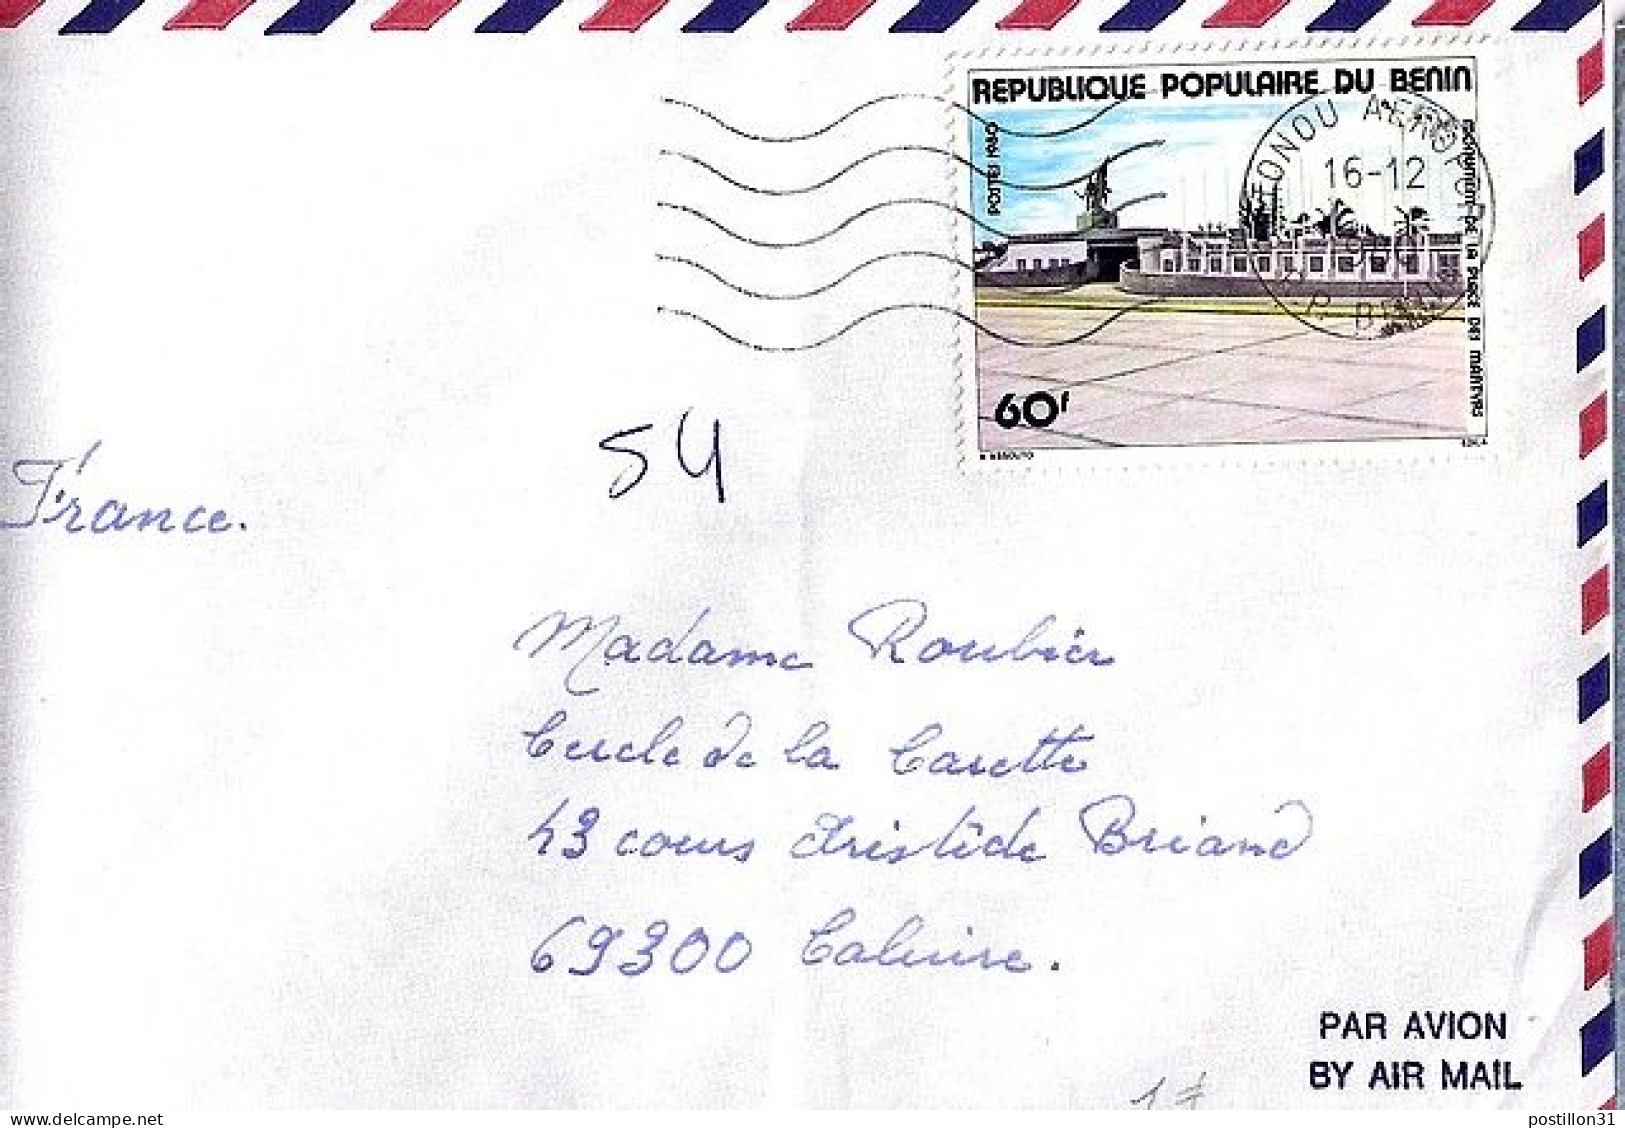 REPUBLIQUE POPULAIRE DU BENIN
POSTES 1980
MONUMENT DE LA PLACE DES MARTYRS
16-12
60f
EDILA
54
France.
Madame Roubier
Cercle de la Carette
43 cours Aristide Briand
69300 Caluire.
PAR AVION
BY AIR MAIL
postillon31